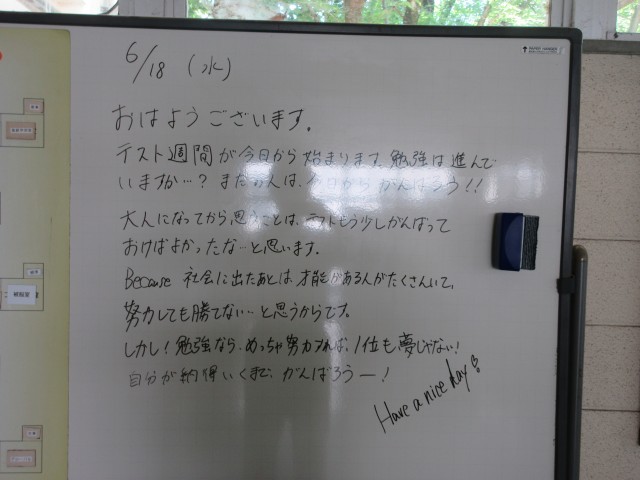 6/18 (水)
おはようございます。
テスト週間が今日から始まります。勉強は進んで
いますか…? まだの人は、今日からがんばろう!!
大人になってから思うことは、テストもう少しがんばって
おけばよかったな…と思います。
Because 社会に出たあとは、才能がある人がたくさんいて、
努力しても勝てない…と思うからです。
しかし！勉強なら、めっちゃ努力すれば、1位も夢じゃない！
自分が納得いくまで、がんばろうー！
Have a nice day